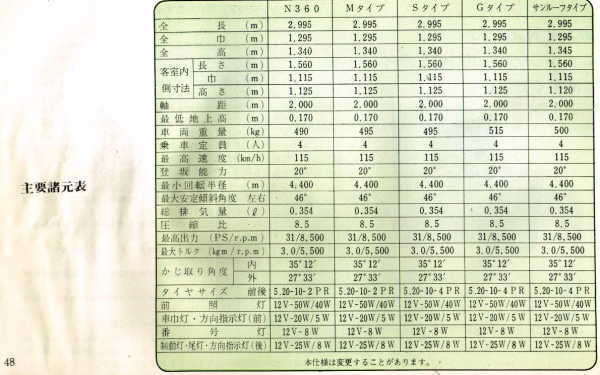 N360 Mタイプ Sタイプ Gタイプ サンルーフタイプ
全長(m) 2.995 2.995 2.995 2.995 2.995
全巾(m) 1.295 1.295 1.295 1.295 1.295
全高(m) 1.340 1.340 1.340 1.340 1.345
客室内側寸法 長さ(m) 1.560 1.560 1.560 1.560 1.560
巾(m) 1.115 1.115 1.115 1.115 1.115
高さ(m) 1.125 1.125 1.125 1.125 1.120
軸距(m) 2.000 2.000 2.000 2.000 2.000
最低地上高(m) 0.170 0.170 0.170 0.170 0.170
車両重量(kg) 490 495 495 515 500
乗車定員(人) 4 4 4 4 4
最高速度(km/h) 115 115 115 115 115
登坂能力 20° 20° 20° 20° 20°
最小回転半径(m) 4.400 4.400 4.400 4.400 4.400
最大安定傾斜角度 左右 46° 46° 46° 46° 46°
総排気量(ℓ) 0.354 0.354 0.354 0.354 0.354
圧縮比 8.5 8.5 8.5 8.5 8.5
最高出力(PS/r.p.m) 31/8,500 31/8,500 31/8,500 31/8,500 31/8,500
最大トルク(kgm/r.p.m) 3.0/5,500 3.0/5,500 3.0/5,500 3.0/5,500 3.0/5,500
かじ取り角度 内 35°12′ 35°12′ 35°12′ 35°12′ 35°12′
外 27°33′ 27°33′ 27°33′ 27°33′ 27°33′
タイヤサイズ 前後 5.20-10-2PR 5.20-10-2PR 5.20-10-4PR 5.20-10-4PR 5.20-10-4PR
前照灯 12V-50W/40W 12V-50W/40W 12V-50W/40W 12V-50W/40W 12V-50W/40W
車巾灯・方向指示灯(前) 12V-20W/5W 12V-20W/5W 12V-20W/5W 12V-20W/5W 12V-20W/5W
番号灯 12V-8W 12V-8W 12V-8W 12V-8W 12V-8W
制動灯・尾灯・方向指示灯(後) 12V-25W/8W 12V-25W/8W 12V-25W/8W 12V-25W/8W 12V-25W/8W
本仕様は変更することがあります。
主要諸元表
48